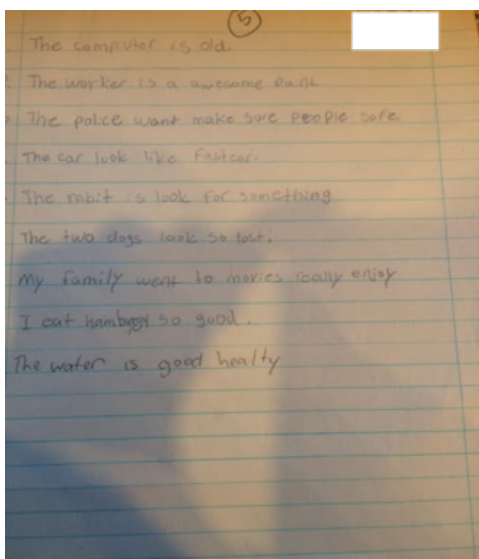 5
The computer is old.
The worker is a awesome
The police want make sure people safe
The car look like Fastcar.
The rabit is look for something
The two dogs look so lost.
My family went to movies really enjoy
I eat so good.
The water is good healty